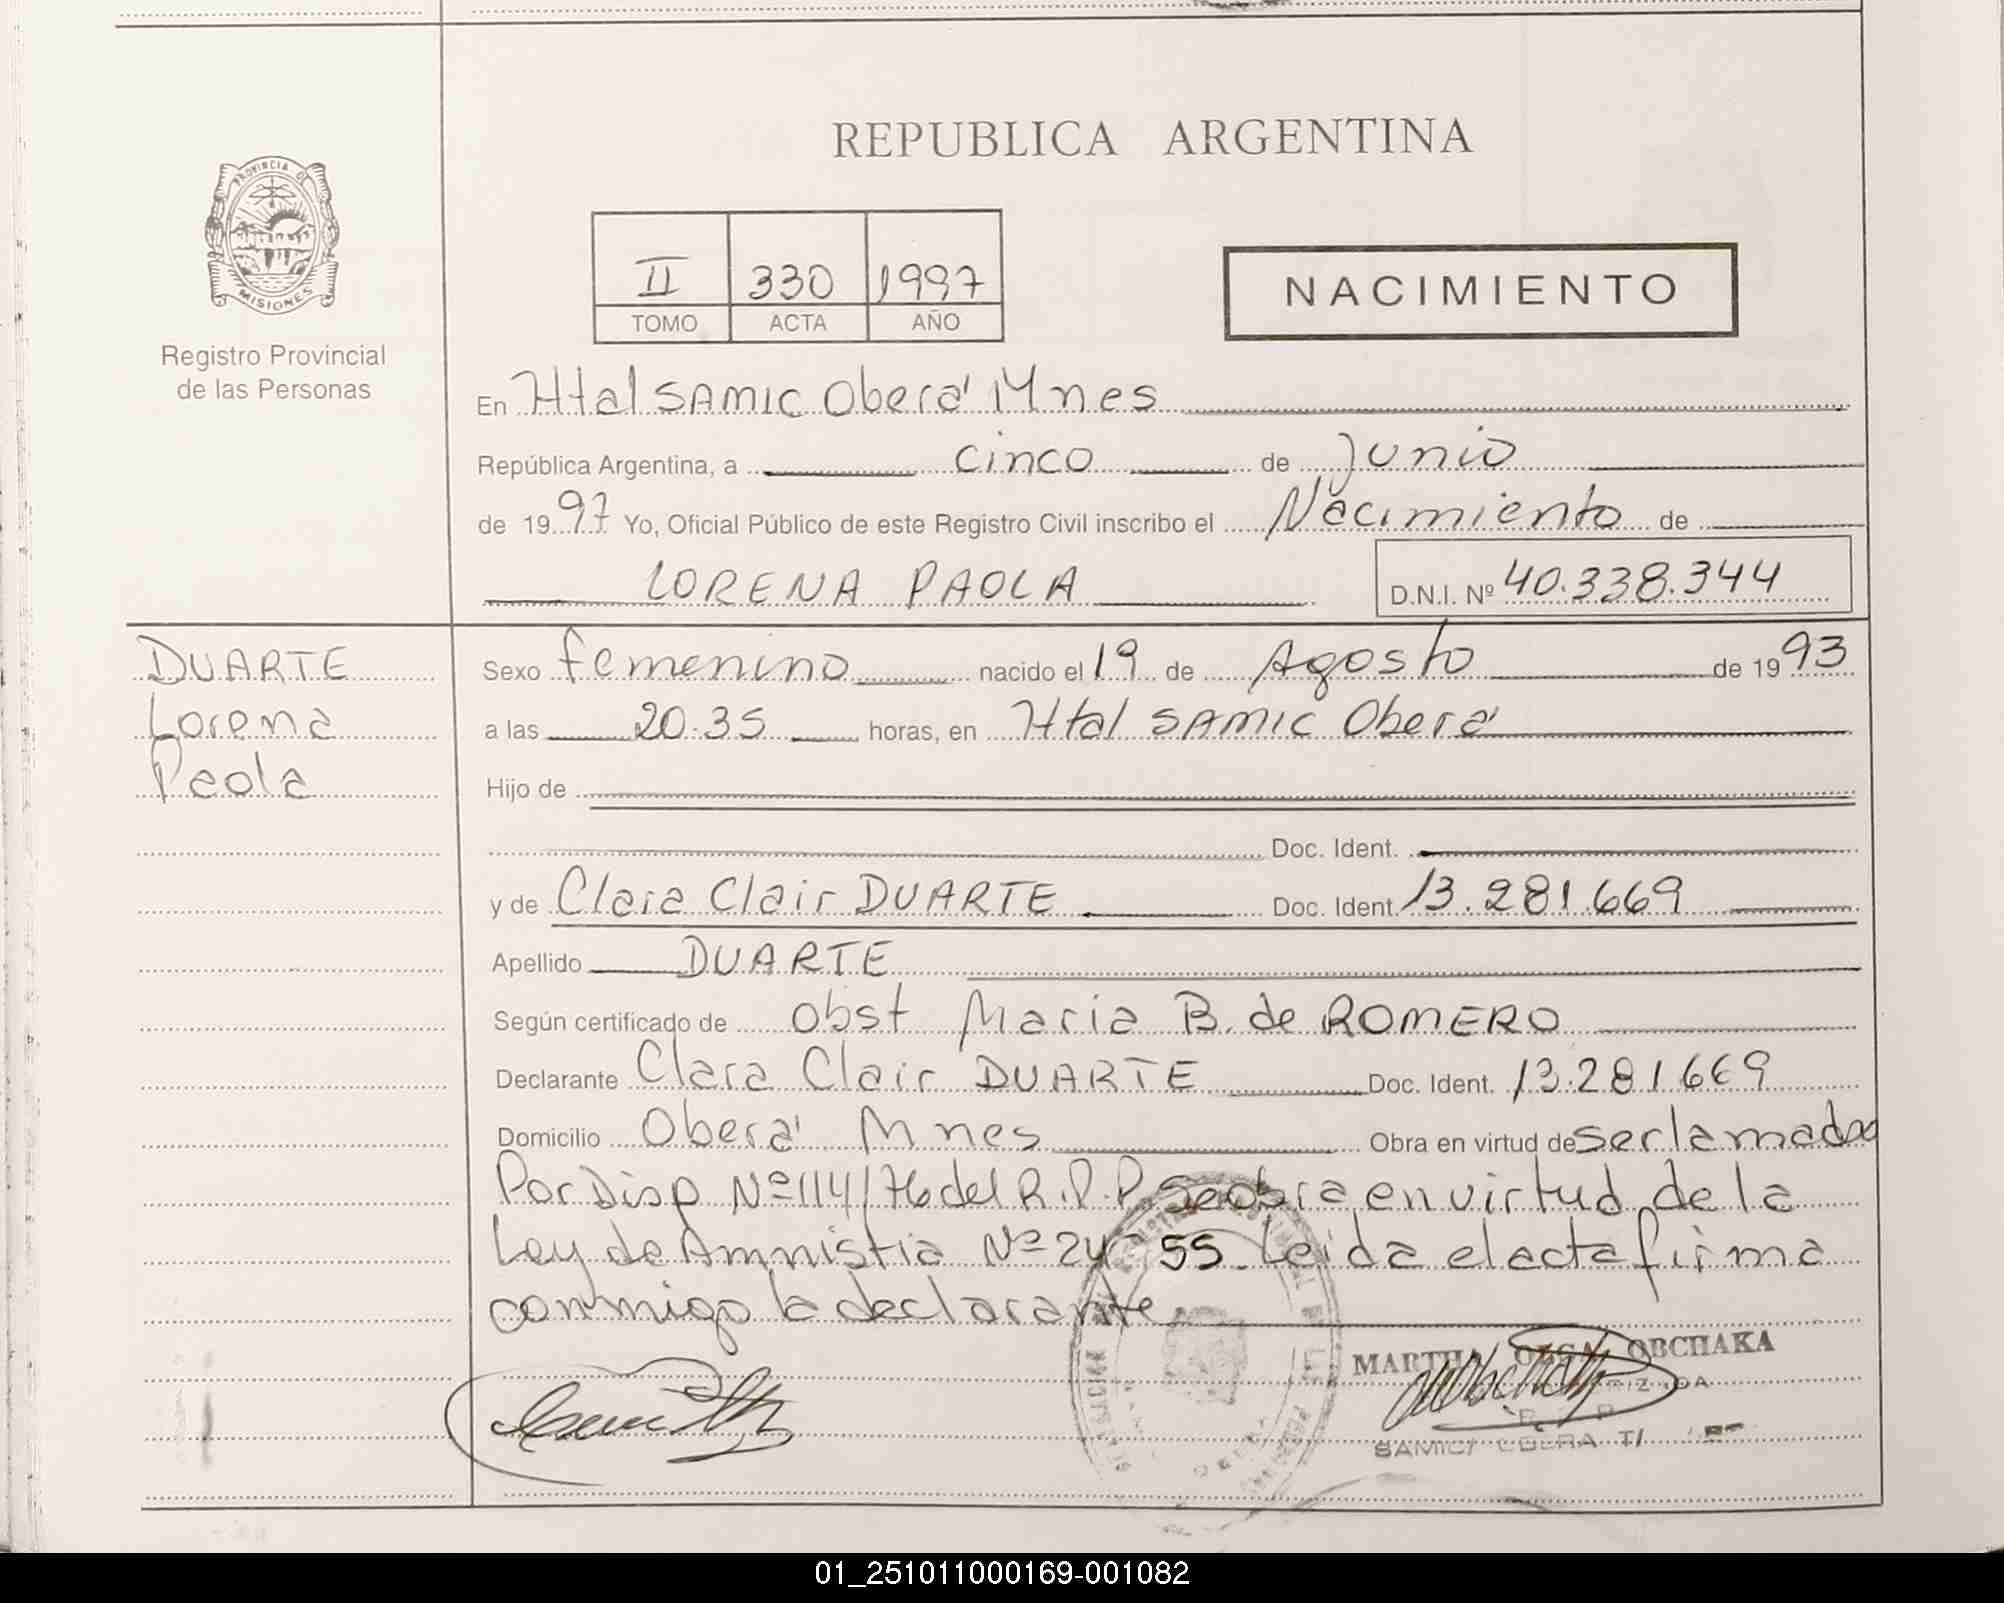 PROVINCIA DE
MISIONES
Registro Provincial
de las Personas
REPUBLICA ARGENTINA
II 330 1997
TOMO ACTA AÑO
NACIMIENTO
En Htal SAMIC Oberá Mnes
República Argentina, a cinco de Junio
de 1997 Yo, Oficial Público de este Registro Civil inscribo el Nacimiento de
LORENA PAOLA D.N.I. Nº 40.338.344
DUARTE
Lorena
Paola
Sexo femenino nacido el 19 de Agosto de 1993
a las 20.35 horas, en Htal SAMIC Oberá
Hijo de
Doc. Ident.
y de Clara Clair DUARTE Doc. Ident. 13.281.669
Apellido DUARTE
Según certificado de Obst Maria B. de ROMERO
Declarante Clara Clair DUARTE Doc. Ident. 13.281669
Domicilio Oberá Mnes Obra en virtud de
Por Disp Nº 114/76 del R.P.P se obra en virtud de la
Ley de Amnistia Nº 24 55. Leida el acta firma
conmigo la declarante
MARTHA OLGA OBCHAKA
SAMIC
01_251011000169-001082